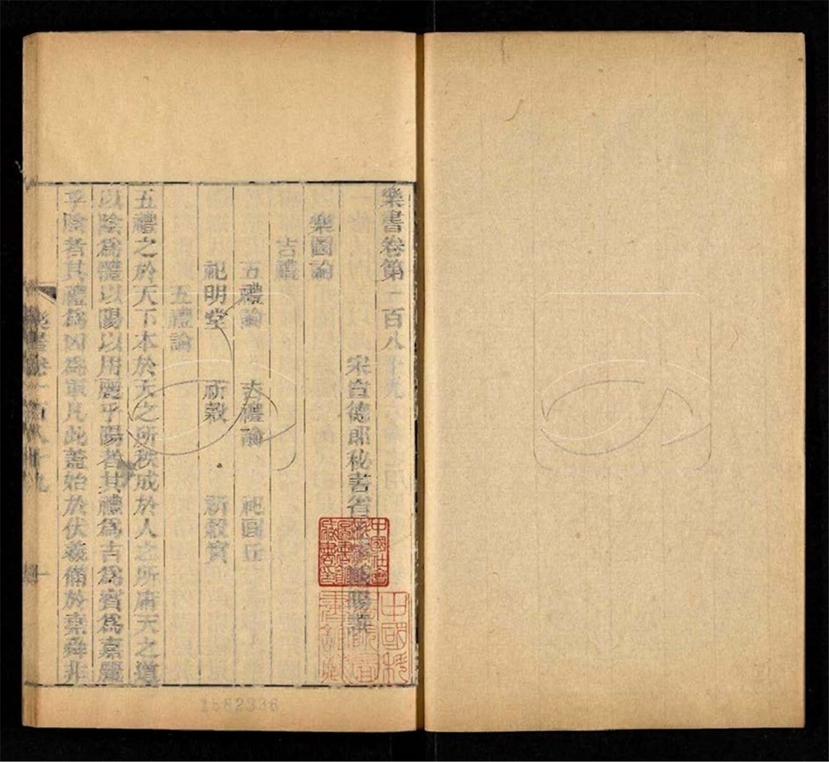 樂書卷第一百八十九
宋宣德郎秘書省正字陳暘撰
樂圖論
吉禮
五禮論 吉禮論 祀圜丘
祀明堂 祈穀 祈穀賓
五禮論
五禮之於天下本於天之所秩成於人之所庸天之道
以陰為體以陽以用麗乎陽者其禮為吉為賓為嘉麗
乎陰者其禮為凶為軍凡此蓋始於伏羲備於堯舜非
樂書卷一百八十九
一
1582336